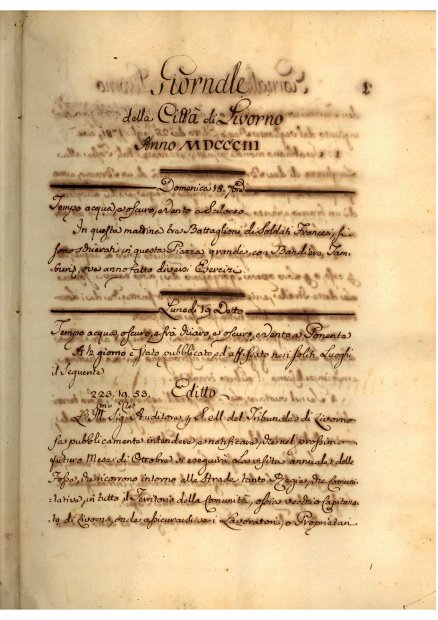 1
Giornale
della Città di Livorno
Anno MDCCCIII
Domenica 18. 7bre
Tempo acqua, e oscuro, e Vento a Scilocco
In questa mattina tra Battaglioni di Soldati Francesi, si
sono schierati in questa Piazza grande, con Bandiera Tam-
buri, ove anno fatto diversi Esercizi
Lunedì 19 Detto
Tempo acqua, oscuro, e frà Chiaro, e oscuro, e Venta a Ponente
A ½ giorno è stato pubblicato ed affissato nei soliti Luoghi
il seguente
223. 19. 53. Editto
L'Ill.mo Sig. Auditore del Tribunale di Livorno
fa pubblicamente intendere, e notificare, che nel prossimo
futuro Mese di Ottobre si eseguirà La visita annuale delle
Fosse, che ricorrono intorno alle Strade tanto Regie, che Comuni-
tative, in tutto il Territorio della Comunità, ossia vecchio Capitana-
to di Livorno, onde assicurarsi se i Lavoratori, o Proprietari